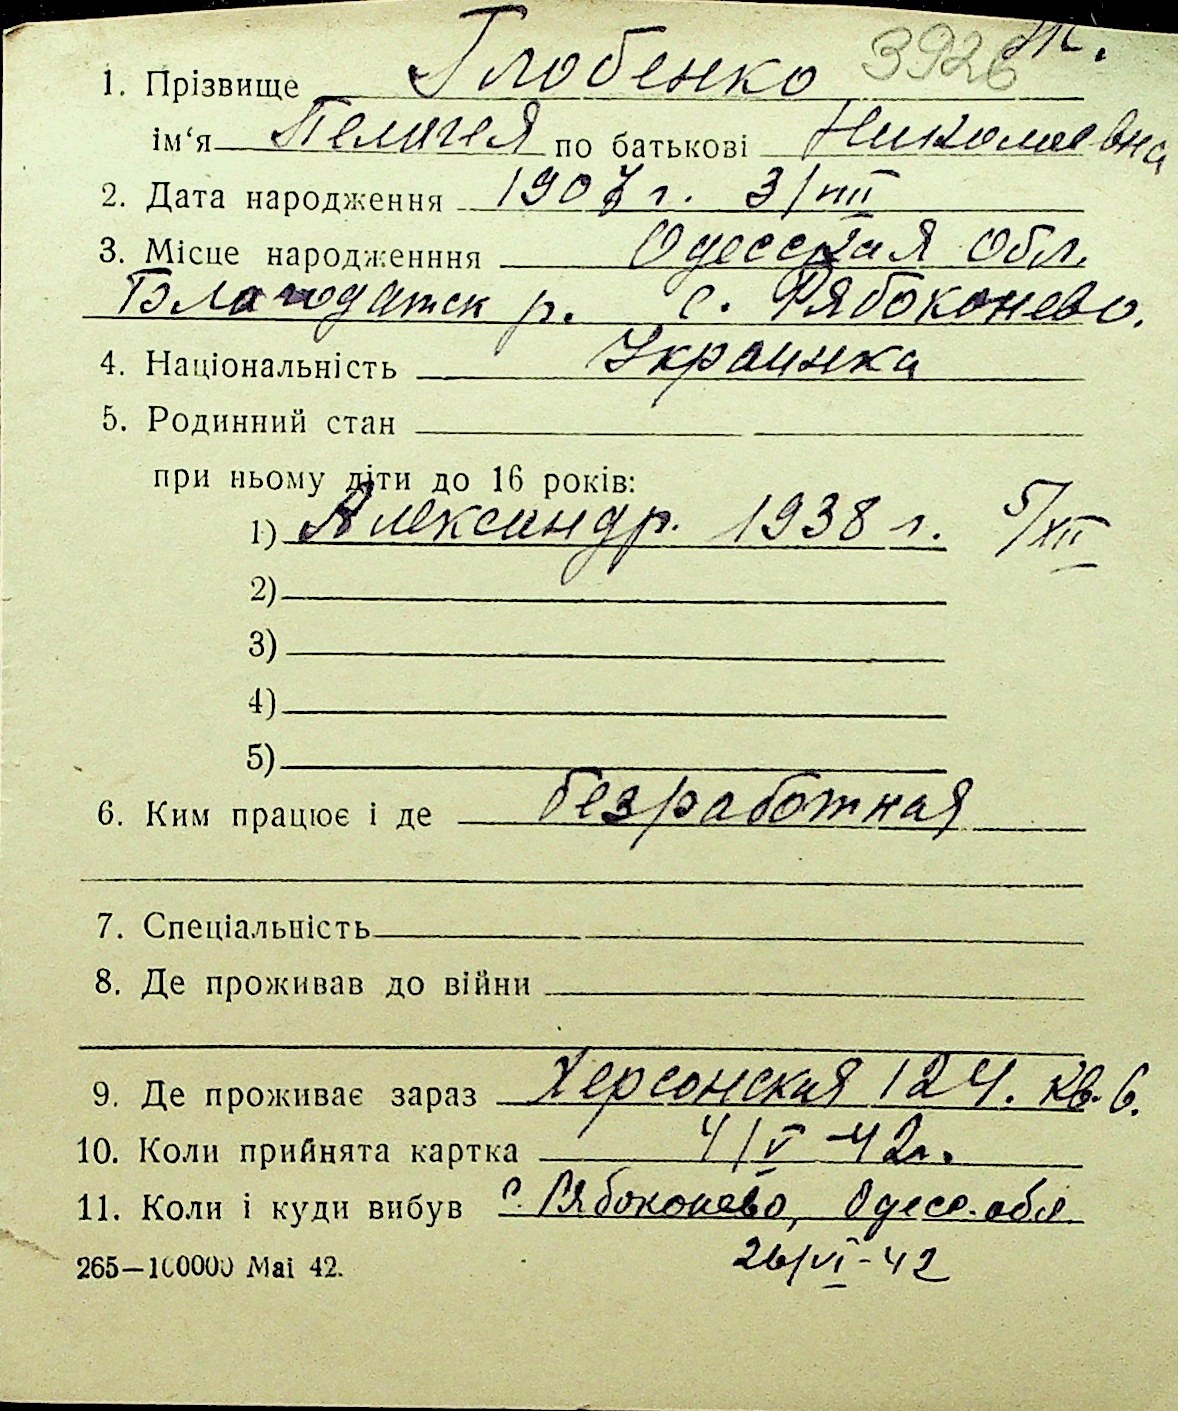 3926
1. Прізвище Глобенко
ім‘я Пелагея по батькові Николаевна
2. Дата народження 1907 г. 3/VIII
3. Місце народженння Одесская обл.
Благодатск р. с. Рябоконево.
4. Національність Украинка
5. Родинний стан
при ньому діти до 16 років:
1) Александр. 1938 г. 5/XII
2)
3)
4)
5)
6. Ким працює і де безработная
7. Спеціальність
8. Де проживав до війни
9. Де проживає зараз Херсонская 124. кв. 6.
10. Коли прийнята картка 4/V-42г.
11. Коли і куди вибув с. Рябоконево, Одесс. обл
26/VI-42
265—100000 Маі 42.